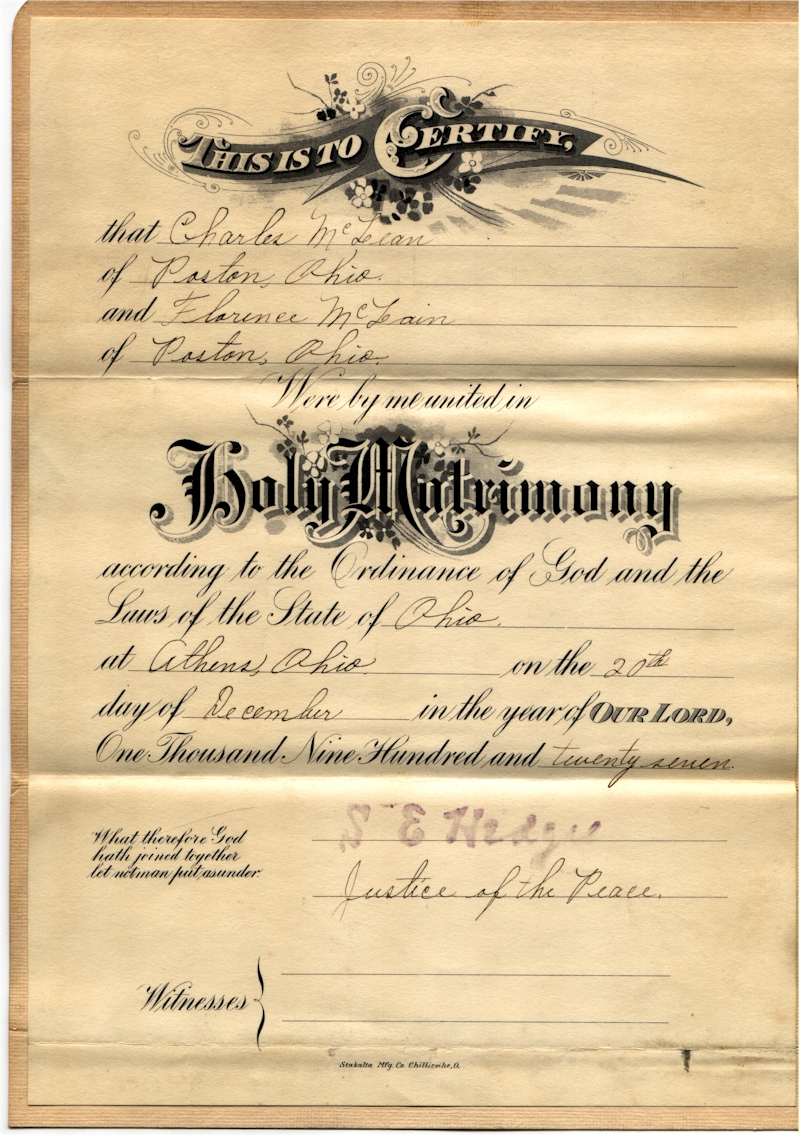 THIS IS TO CERTIFY,
that Charles McLean
of Poston, Ohio.
and Florence McLain
of Poston, Ohio.
Were by me united in
Holy Matrimony
according to the Ordinance of God and the
Laws of the State of Ohio.
at Athens, Ohio on the 20th
day of December in the year of OUR LORD,
One Thousand Nine Hundred and twenty seven.
What therefore God
hath joined together
let not man put asunder.
S E Hedge
Justice of the Peace.
Witnesses
Mfg. Co. Chillicothe, O.